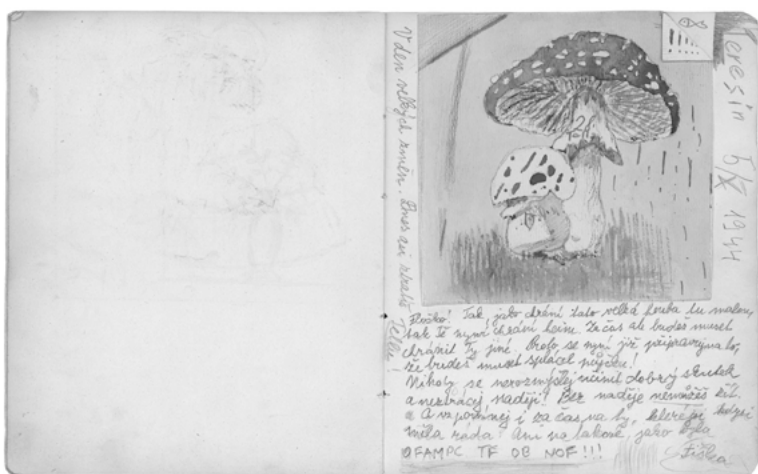 V den velkých změn. Dnes asi ztratíš Tellu!
Terezín 5/X 1944
Floško! Tak, jako chrání tato velká houba tu malou,
tak Tě nyní chrání heim. Za čas ale budeš muset
chránit Ty jiné. Proto se nyní již připravuj na to,
že budeš muset splácet půjčku!
Nikdy se nerozmýšlej učinit dobrý skutek
a neztrácej naději! Bez naděje nemůžeš žít.
a A vzpomínej i za čas na ty, které jsi kdysi
měla ráda. Ani na takové, jako byla
Fiška
OFAMPC TF OB NOF!!!